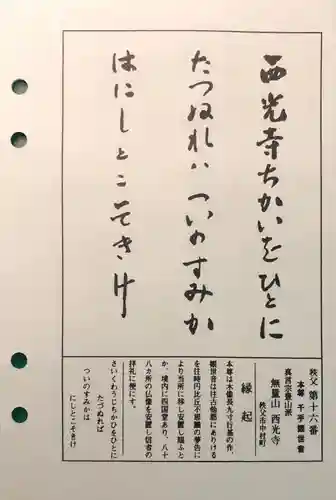 西光寺ちかいをひとに
たつぬれハついのすみか
はにしとこそきけ
秩父第十六番
本尊 千手観世音
真言宗豊山派
無量山 西光寺
秩父市中村町
縁起
本尊は木像長九寸行基の作、
を往時円比丘不思議の夢告に
より当所に移し安置し賜ふと
か、境内に四国堂あり、八十
八カ所の仏像を安置し信者の
拝礼に便にす。
さいくわうじちかひをひとに
たづぬれば
ついのすみかは
にしとこそきけ